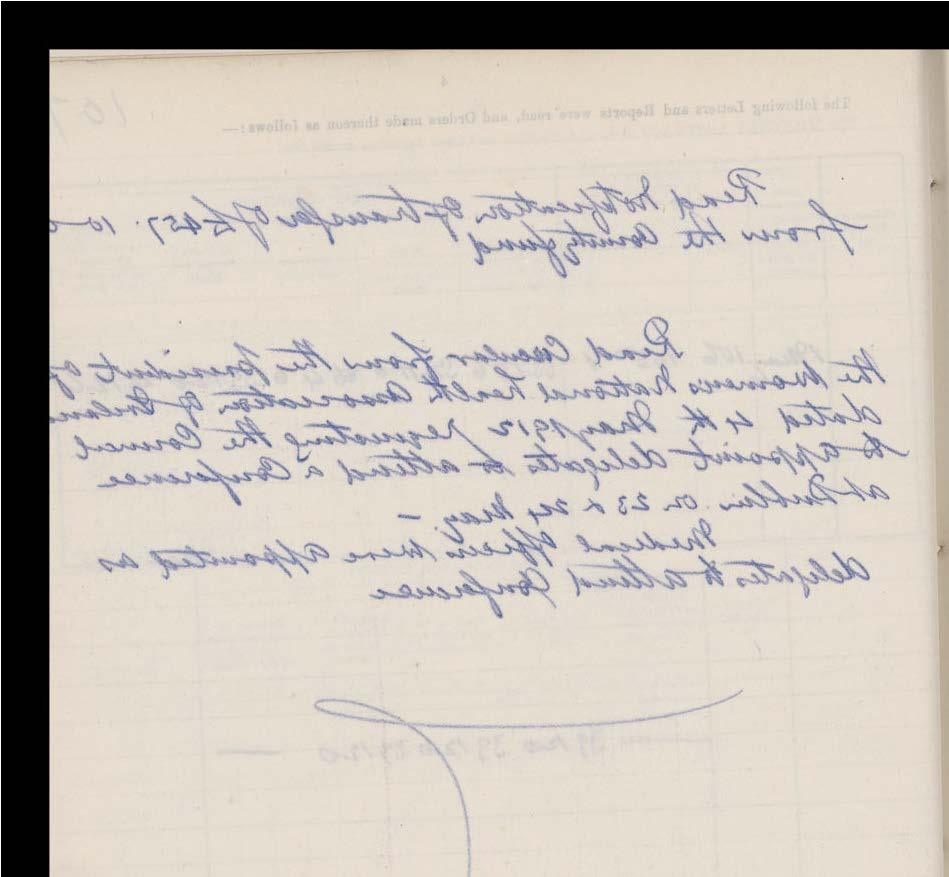 The following Letters and Reports were read, and Orders made thereon as follows:—
Read Notification of transfer of £457. 10-
from the County fund
Read Circular from the President of
the Womens National Health Association of Ireland
dated 4th May 1912 requesting the Council
to appoint delegates to attend a Conference
at Dublin on 23 & 24 May. –
Medical officers were appointed as
delegates to attend Conference